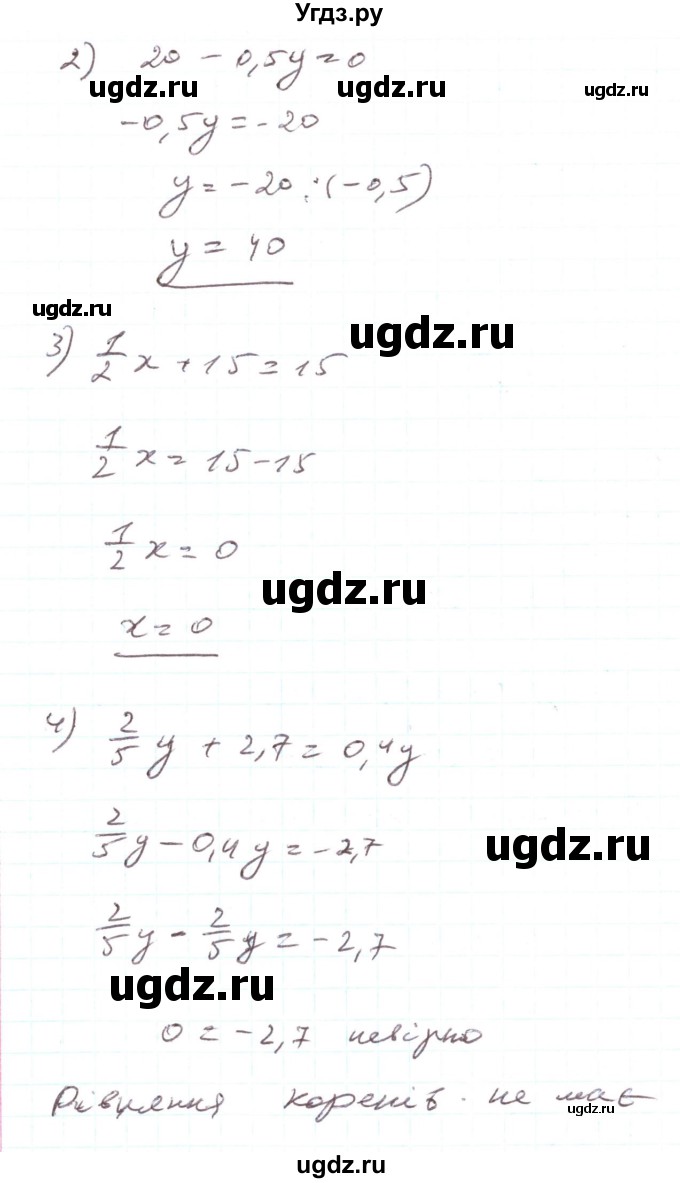 Угдз.ру
2) 20 - 0,5y = 0
ugdz.ru ugdz.ru ugdz.ru
-0,5y = -20
y = -20 : (-0,5)
y = 40
ugdz.ru
ugdz.ru
3) 1/2 x + 15 = 15
1/2 x = 15 - 15
1/2 x = 0
ugdz.ru
x = 0
4) 2/5 y + 2,7 = 0,4y
2/5 y - 0,4y = -2,7
ugdz.ru
2/5 y - 2/5 y = -2,7
ugdz.ru
0 = -2,7 невірно
Рівняння коренів не має
ugdz.ru
ugdz.ru